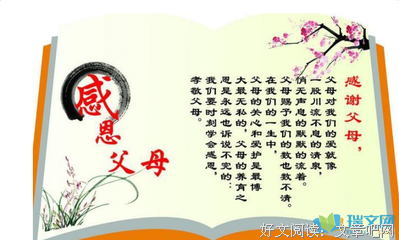 感谢父母，
父母对我们的爱就像
一股川流不息的清泉，
悄无声息的默默的流着。
父母赐予我们的数也数不清。
在我们的一生中，
父母的关心和爱护是最博
大最无私的，父母的养育之
恩是永远也诉说不完的：
我们要时刻学会感恩
孝敬父母。
感恩父母
瑞文网
好文阅读：文章吧网